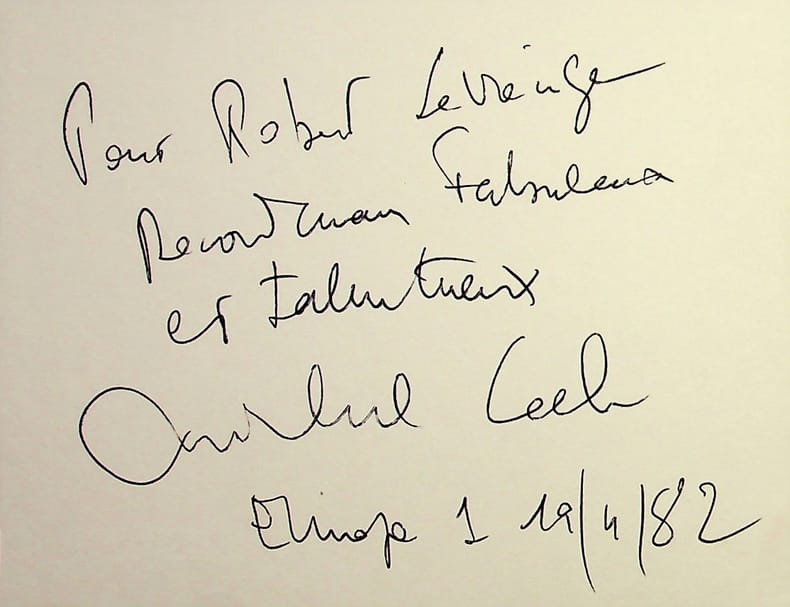 Pour Robert Levrangé
Recordman Fabuleux
et talentueux
Europe 1 19/4/82